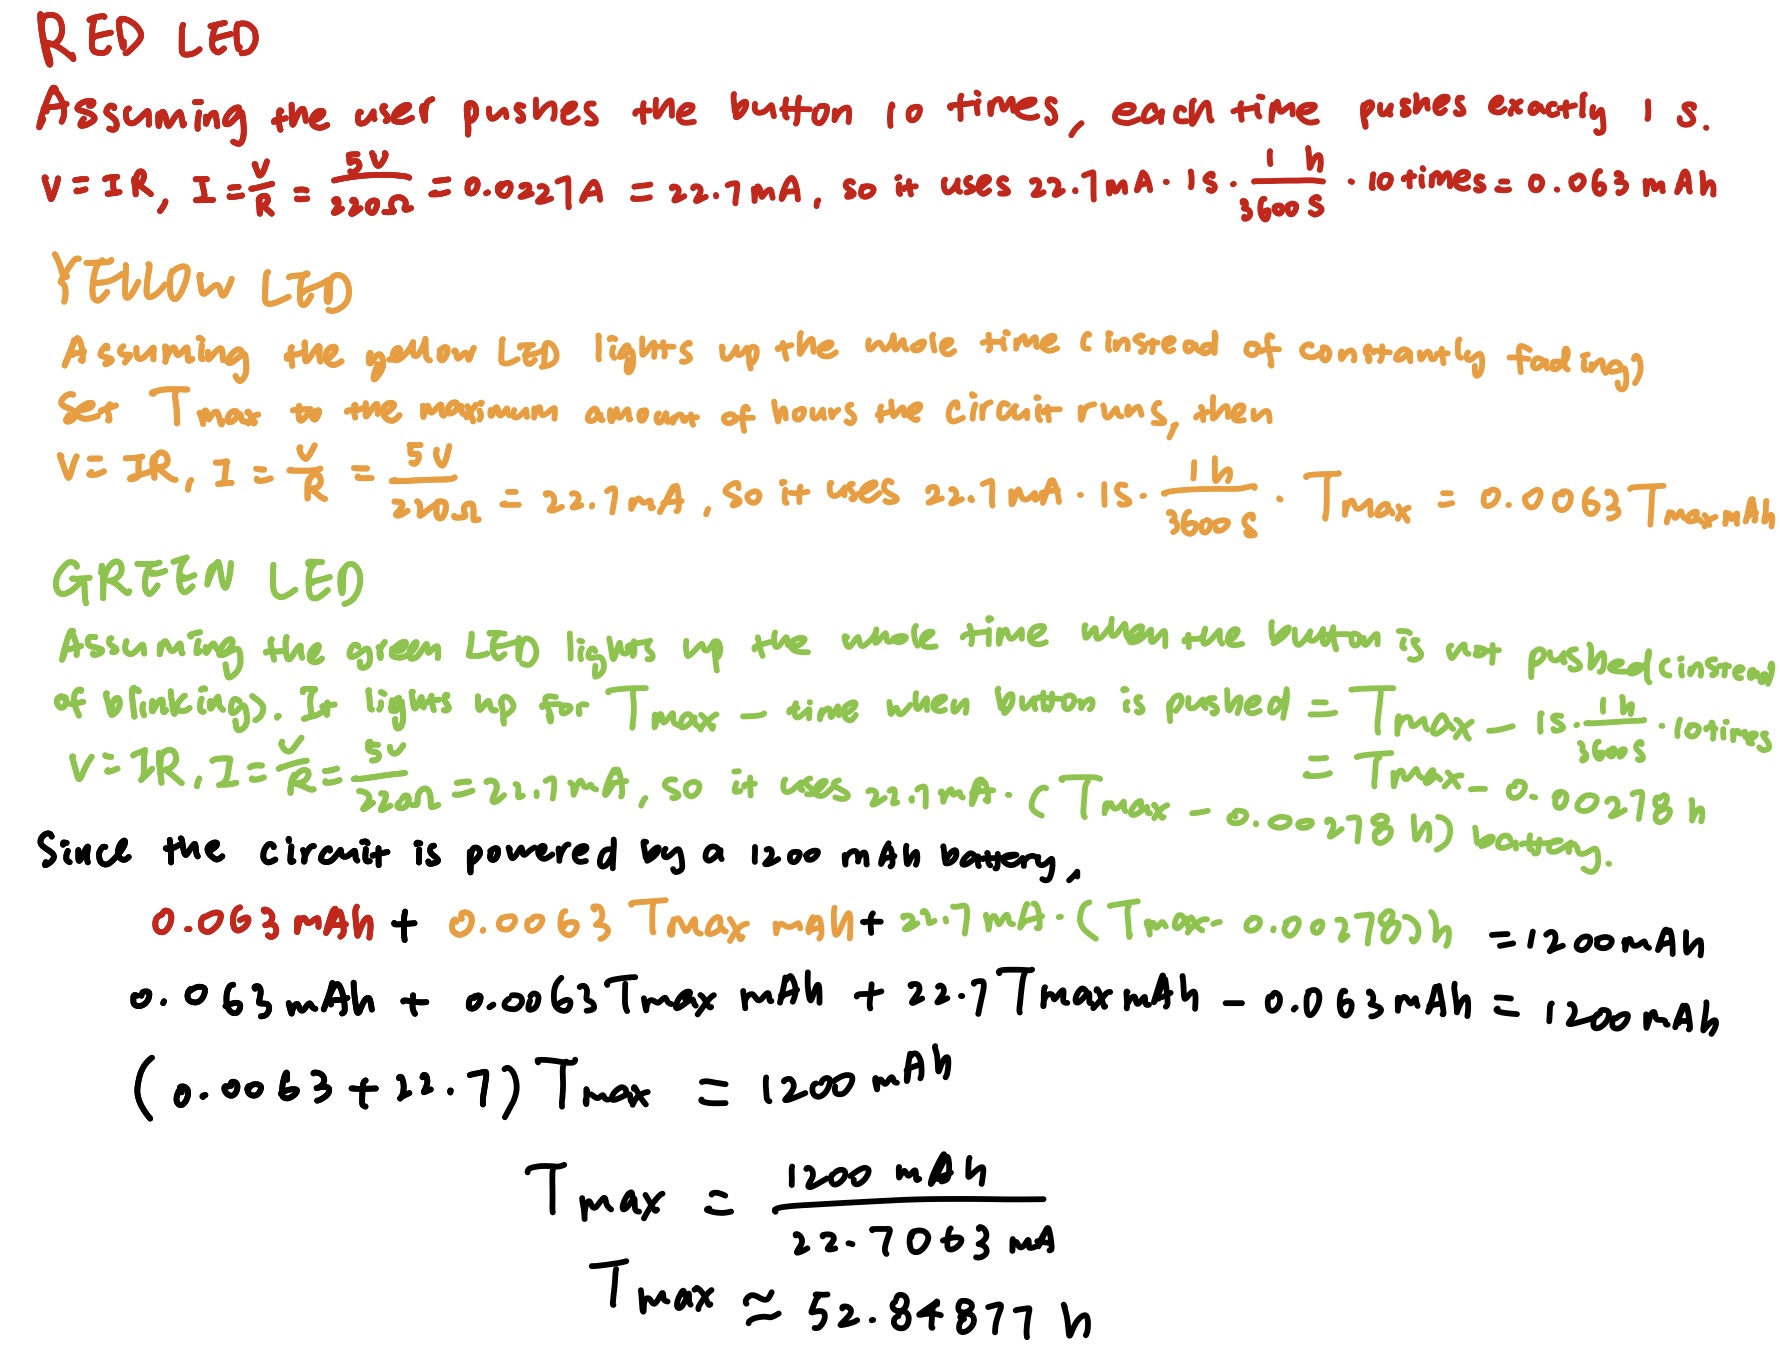 RED LED
Assuming the user pushes the button 10 times, each time pushes exactly 1 s.
V = IR, I = V/R = 5V/220Ω = 0.0227A = 22.7mA, so it uses 22.7mA · 1s · 1h/3600s · 10 times = 0.063 mAh
YELLOW LED
Assuming the yellow LED lights up the whole time (instead of constantly fading)
Set Tmax to the maximum amount of hours the circuit runs, then
V = IR, I = V/R = 5V/220Ω = 22.7mA, so it uses 22.7mA · 1s · 1h/3600s · Tmax = 0.0063 Tmax mAh
GREEN LED
Assuming the green LED lights up the whole time when the button is not pushed (instead
of blinking). It lights up for Tmax − time when button is pushed = Tmax − 1s · 1h/3600s · 10 times
= Tmax − 0.00278 h
V = IR, I = V/R = 5V/220Ω = 22.7mA, so it uses 22.7mA · (Tmax − 0.00278 h) battery.
Since the circuit is powered by a 1200 mAh battery,
0.063 mAh + 0.0063 Tmax mAh + 22.7mA · (Tmax − 0.00278)h = 1200mAh
0.063mAh + 0.0063Tmax mAh + 22.7Tmax mAh − 0.063mAh = 1200mAh
(0.0063 + 22.7) Tmax = 1200 mAh
Tmax = 1200 mAh/22.7063 mA
Tmax ≈ 52.84877 h